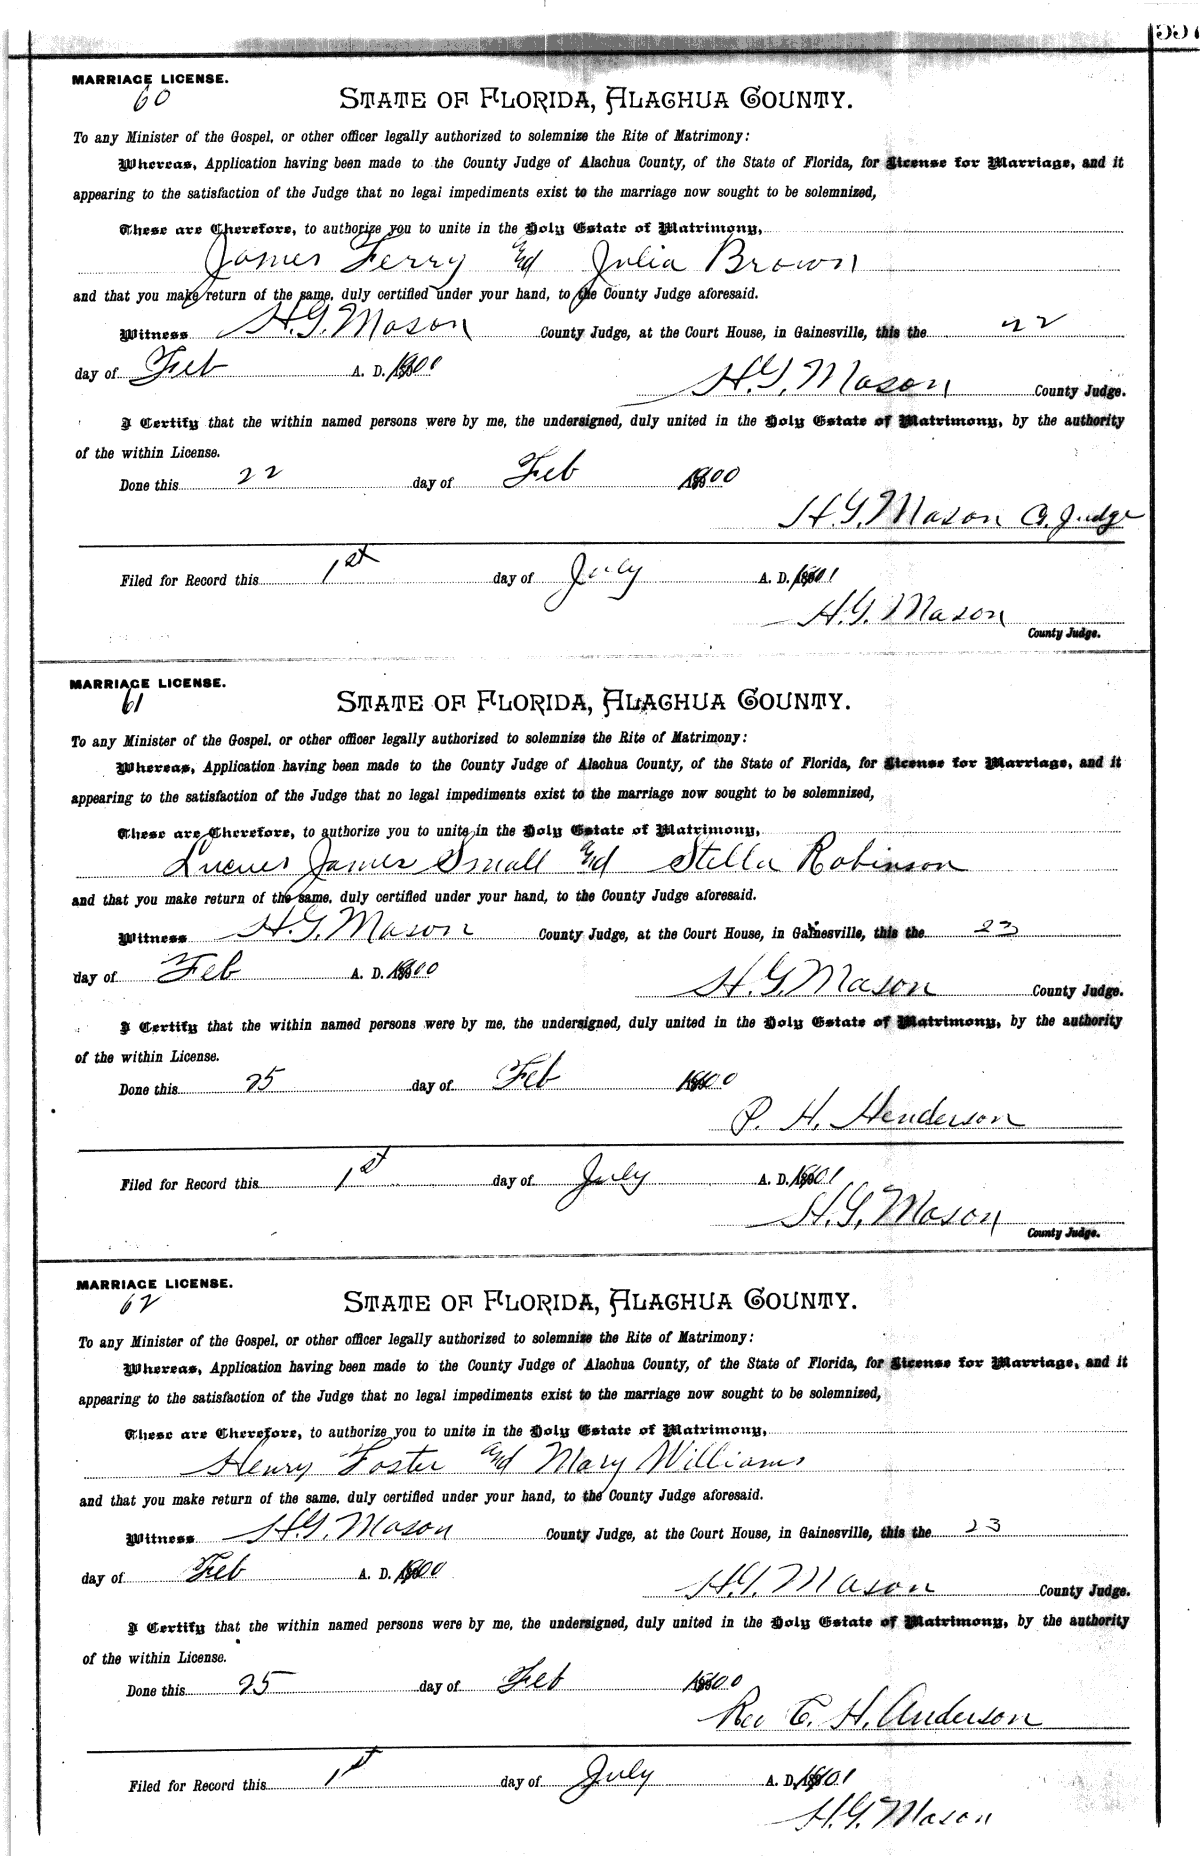 MARRIAGE LICENSE.
60
STATE OF FLORIDA, ALACHUA COUNTY.
To any Minister of the Gospel, or other officer legally authorized to solemnize the Rite of Matrimony:
Whereas, Application having been made to the County Judge of Alachua County, of the State of Florida, for License for Marriage, and it
appearing to the satisfaction of the Judge that no legal impediments exist to the marriage now sought to be solemnized,
These are Therefore, to authorize you to unite in the Holy Estate of Matrimony,
James Ferry and Julia Brown
and that you make return of the same, duly certified under your hand, to the County Judge aforesaid.
Witness H.G. Mason County Judge, at the Court House, in Gainesville, this the 22
day of Feb A. D. 1900
H.G. Mason County Judge.
I Certify that the within named persons were by me, the undersigned, duly united in the Holy Estate of Matrimony, by the authority
of the within License.
Done this 22 day of Feb 1900
H.G. Mason Co. Judge
Filed for Record this 1st day of July A. D. 1901
H.G. Mason
County Judge.
MARRIAGE LICENSE.
61
STATE OF FLORIDA, ALACHUA COUNTY.
To any Minister of the Gospel, or other officer legally authorized to solemnize the Rite of Matrimony:
Whereas, Application having been made to the County Judge of Alachua County, of the State of Florida, for License for Marriage, and it
appearing to the satisfaction of the Judge that no legal impediments exist to the marriage now sought to be solemnized,
These are Therefore, to authorize you to unite in the Holy Estate of Matrimony,
James Small and Stella Robinson
and that you make return of the same, duly certified under your hand, to the County Judge aforesaid.
Witness H.G. Mason County Judge, at the Court House, in Gainesville, this the 23
day of Feb A. D. 1900
H.G. Mason County Judge.
I Certify that the within named persons were by me, the undersigned, duly united in the Holy Estate of Matrimony, by the authority
of the within License.
Done this 25 day of Feb 1900
P. H. Henderson
Filed for Record this 1st day of July A. D. 1901
H.G. Mason
County Judge.
MARRIAGE LICENSE.
62
STATE OF FLORIDA, ALACHUA COUNTY.
To any Minister of the Gospel, or other officer legally authorized to solemnize the Rite of Matrimony:
Whereas, Application having been made to the County Judge of Alachua County, of the State of Florida, for License for Marriage, and it
appearing to the satisfaction of the Judge that no legal impediments exist to the marriage now sought to be solemnized,
These are Therefore, to authorize you to unite in the Holy Estate of Matrimony,
Henry Foster and Mary Williams
and that you make return of the same, duly certified under your hand, to the County Judge aforesaid.
Witness H.G. Mason County Judge, at the Court House, in Gainesville, this the 23
day of Feb A. D. 1900
H.G. Mason County Judge.
I Certify that the within named persons were by me, the undersigned, duly united in the Holy Estate of Matrimony, by the authority
of the within License.
Done this 25 day of Feb 1900
Rev C. H. Anderson
Filed for Record this 1st day of July A. D. 1901
H.G. Mason